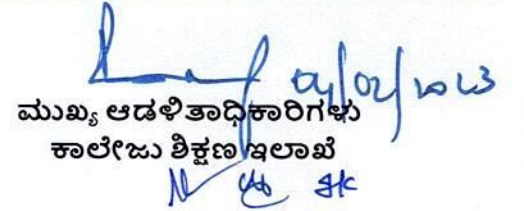 04/02/2023
ಮುಖ್ಯ ಆಡಳಿತಾಧಿಕಾರಿಗಳು
ಕಾಲೇಜು ಶಿಕ್ಷಣ ಇಲಾಖೆ